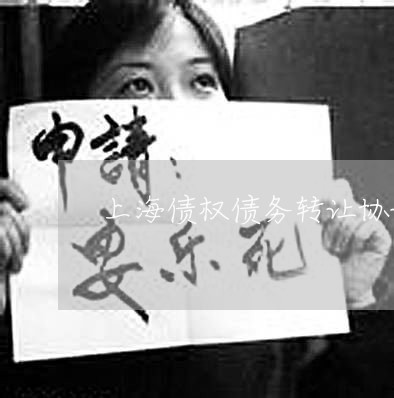 申請：
上海债权债务转让协
安乐死